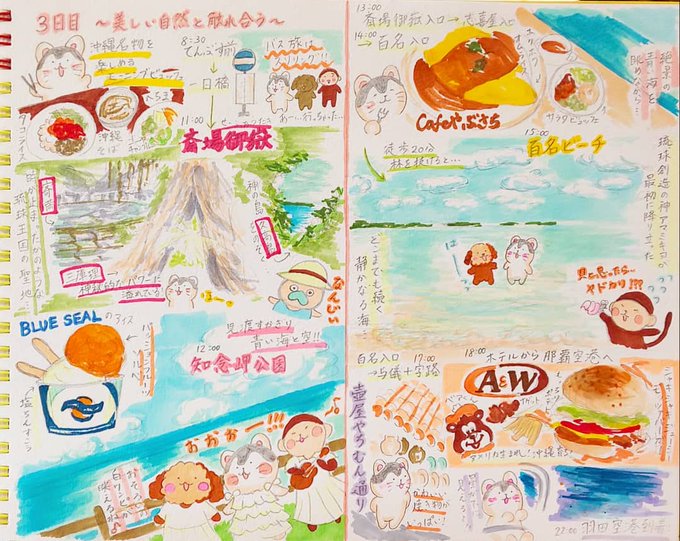 3日目 〜美しい自然と触れ合う〜
沖縄名物を
楽しめる
モーニングビュッフェ
タコライス
沖縄
そば
8:30
てんぶす前
↓
白橋
↓
11:00
バス旅は
斎場御嶽
三庫理
神の島
久高島
琉球王国の聖地
BLUE SEAL のアイス
塩ちんすこう
12:00
見渡すかぎり
青い海と空!!
知念岬公園
おぉぉー!!!
13:00
斎場御嶽入口→志喜屋
14:00
→百名入口
オムライス
Cafeやぶさち
サラダビュッフェ
絶景の
青い海を
眺めながら…
徒歩20分
林を抜けると…
15:00
百名ビーチ
琉球創造の神アマミキヨが
最初に降り立った
どこまでも続く
静かなる海…
貝と思ったら…
ヤドカリ!!!
百名入口 17:00
→与儀十字路
壺屋やちむん通り
かわいい
焼き物が
いっぱい!
18:00 ホテルから那覇空港へ
A&W
アメリカ生まれ!沖縄育ち!
22:00 羽田空港到着